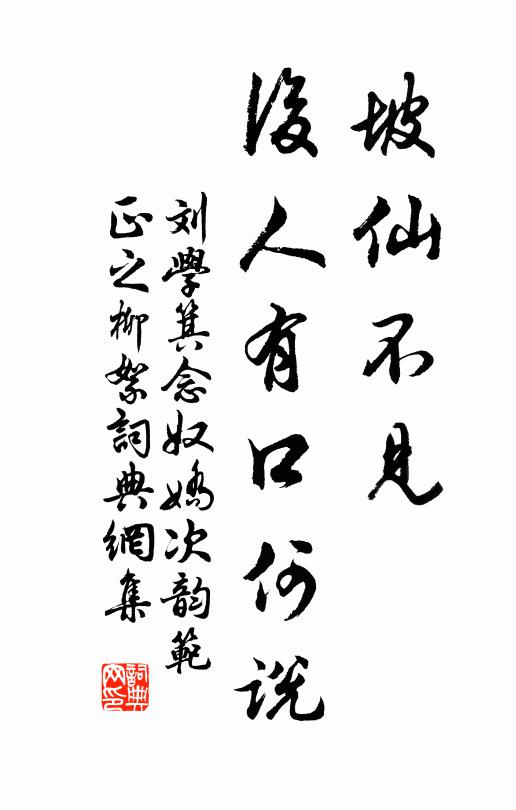 坡仙不見
後人有口何說
刘學箕念奴嬌次韵範
正之柳絮詞典網集
詞典
网印